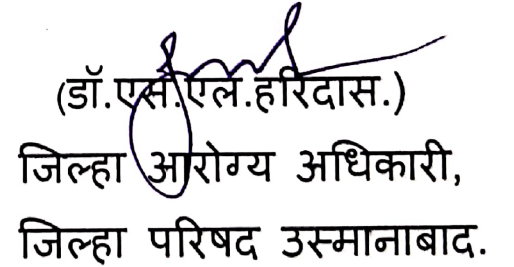 (डॉ.एस.एल.हरिदास.)
जिल्हा आरोग्य अधिकारी,
जिल्हा परिषद उस्मानाबाद.